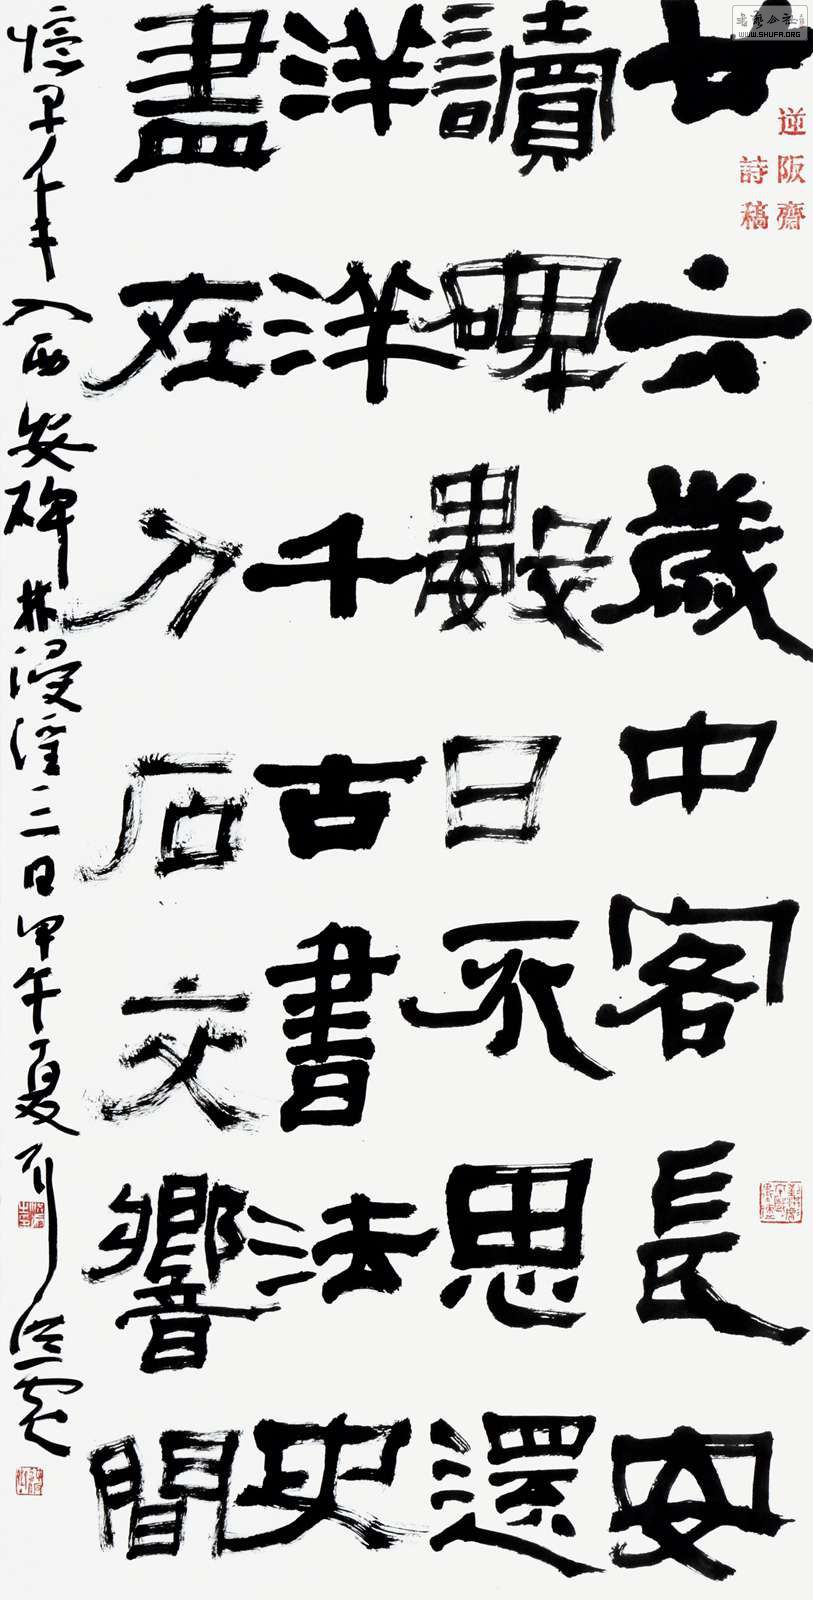 书艺公社
WWW.SHUFA.ORG
逆阪齋
詩稿
廿六歲中客長安
讀碑數日不思還
洋洋千古書法史
盡在刀石交響間
憶早年入西安碑林浸淫三日甲午夏刘洪彪